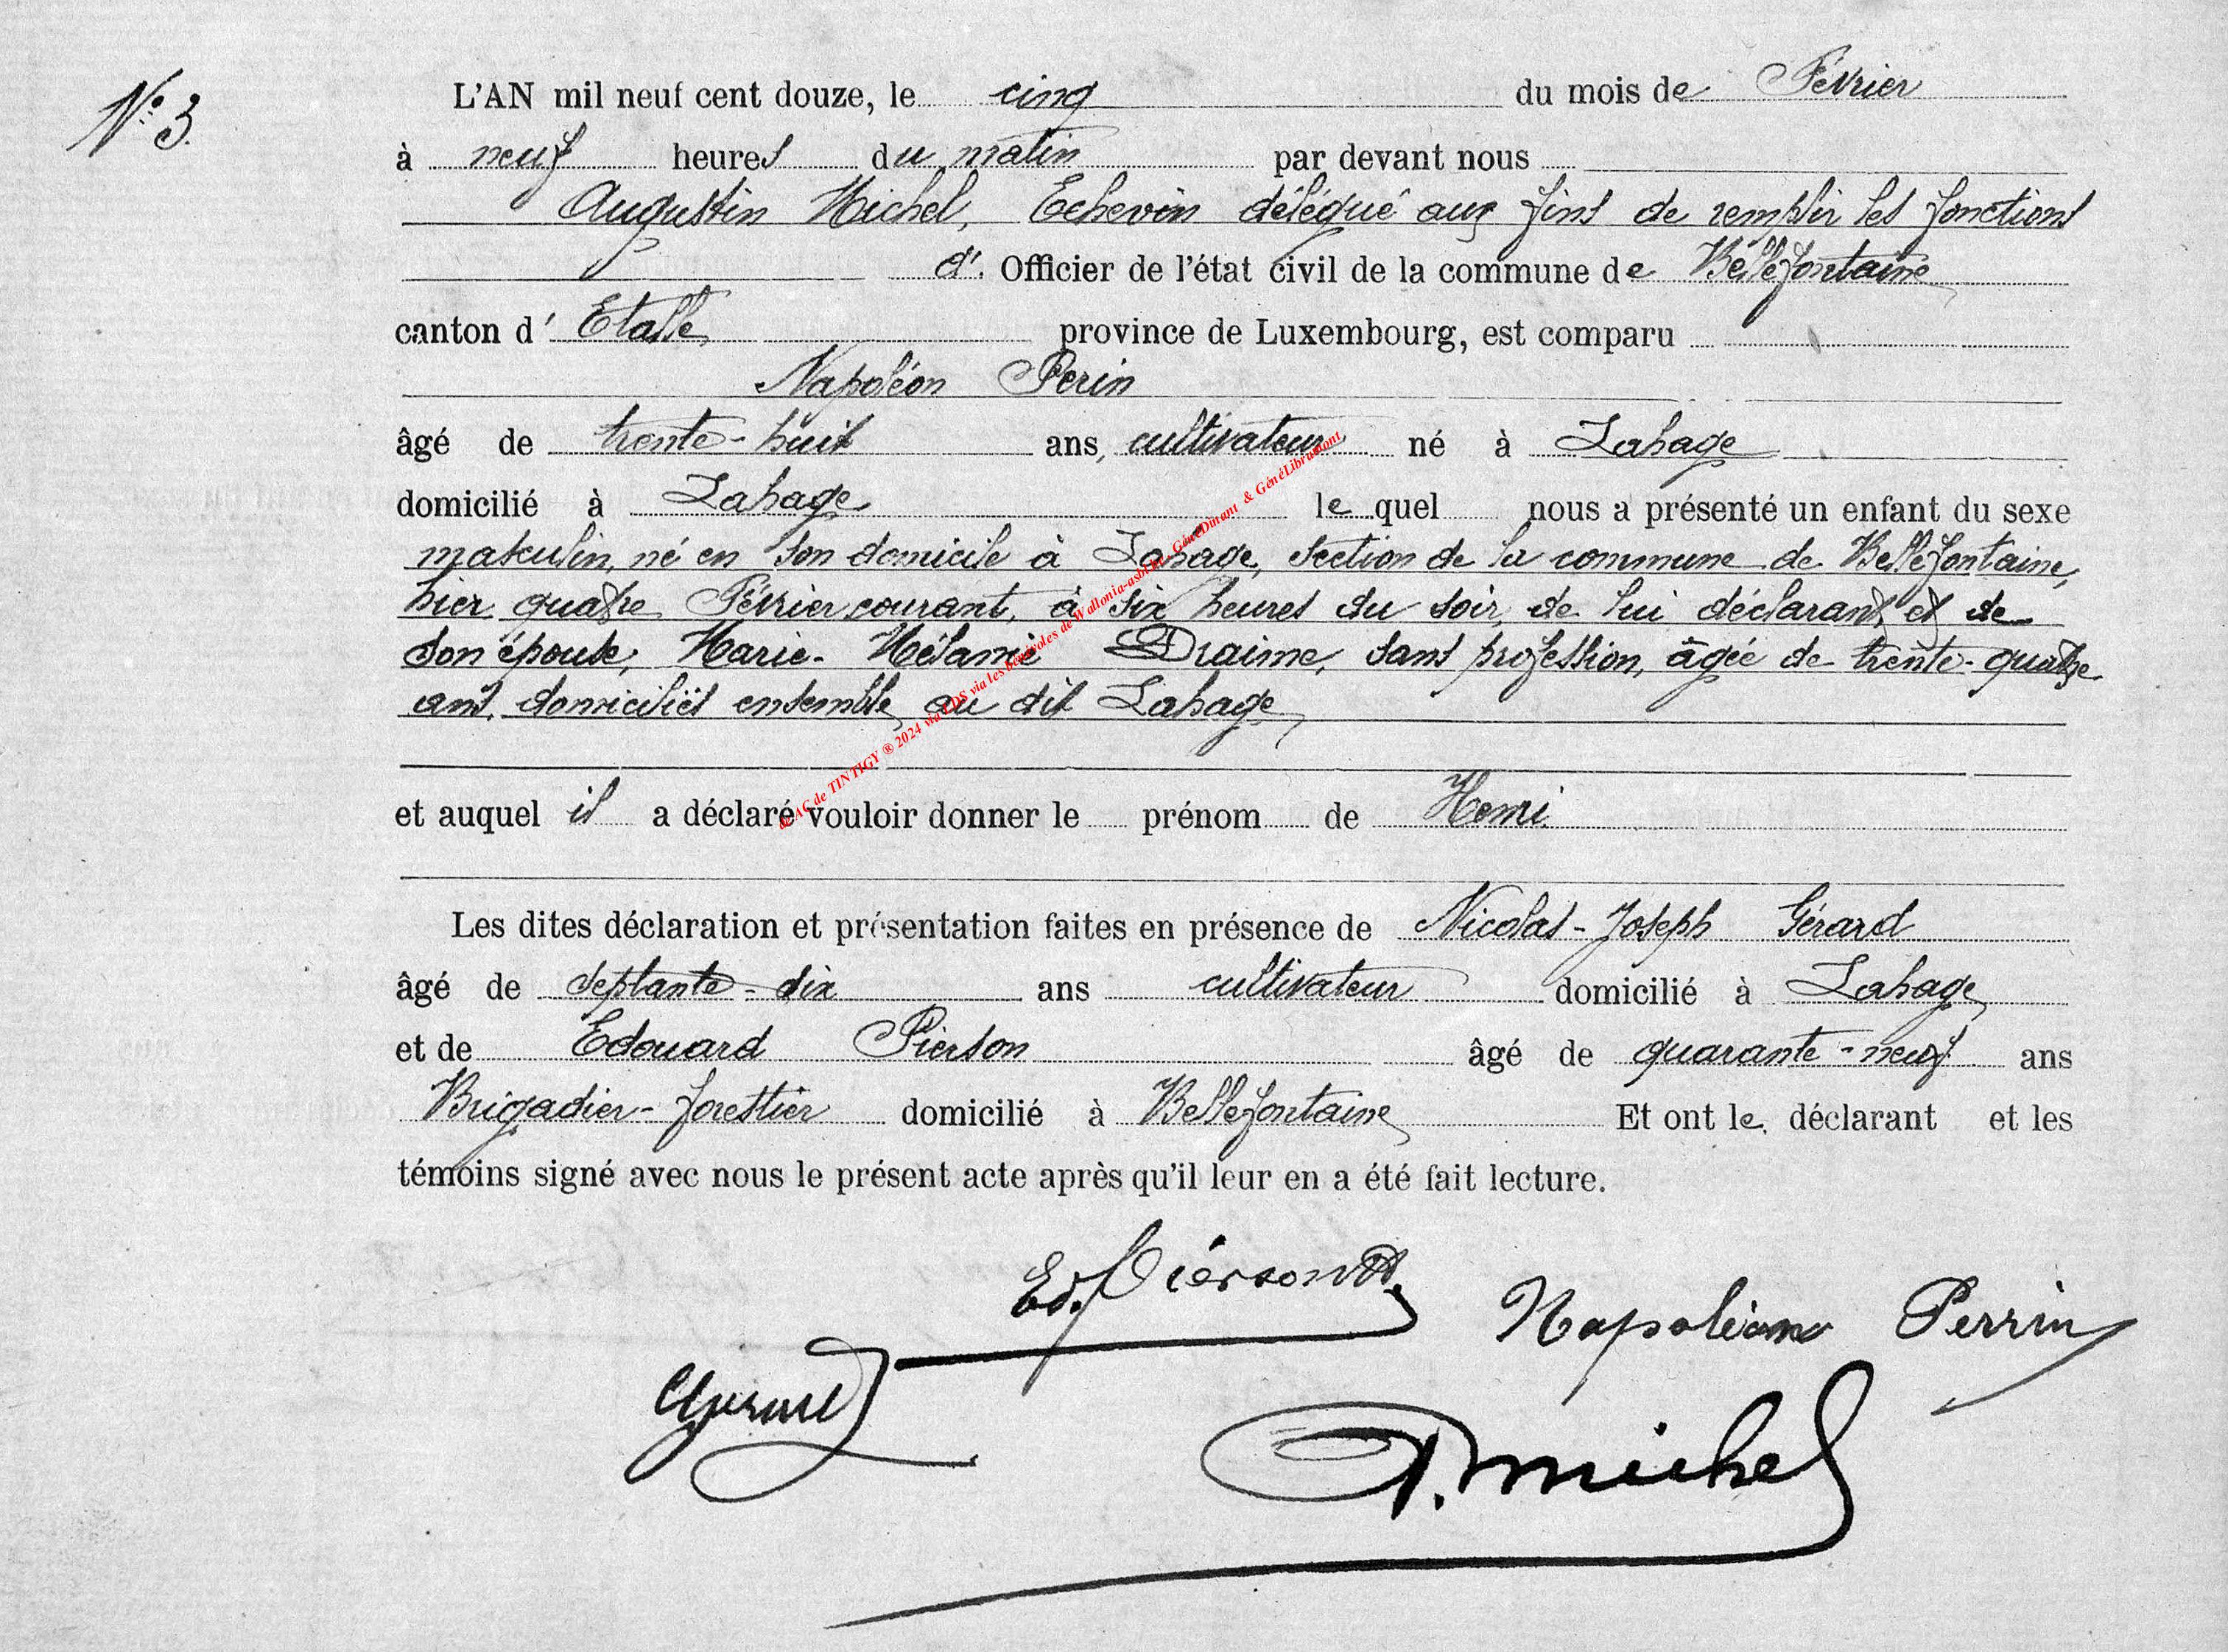 N° 3.
L'AN mil neuf cent douze, le cinq du mois de Février
à neuf heures du matin par devant nous
Augustin Michel, Echevin délégué aux fins de remplir les fonctions
d'. Officier de l'état civil de la commune de Bellefontaine
canton d' Etalle province de Luxembourg, est comparu
Napoléon Perin
âgé de trente-huit ans, cultivateur né à Lahage
domicilié à Lahage lequel nous a présenté un enfant du sexe
masculin, né en son domicile à Lahage, section de la commune de Bellefontaine,
hier quatre Février courant, à six heures du soir, de lui déclarant, et de
son épouse, Marie-Mélanie Draime, sans profession, âgée de trente-quatre
ans, domiciliés ensemble au dit Lahage
et auquel il a déclaré vouloir donner le prénom de Henri.
Les dites déclaration et présentation faites en présence de Nicolas-Joseph Gérard
âgé de septante-six ans cultivateur domicilié à Lahage
et de Edouard Pierson âgé de quarante-neuf ans
Brigadier-forestier domicilié à Bellefontaine Et ont le déclarant et les
témoins signé avec nous le présent acte après qu'il leur en a été fait lecture.
Ed. Pierson
Napoléon Perrin
Gérard
A. Michel
de AC de TINTIGY ® 2024 via CDS via les bénévoles de Wallonia-asbl.be, GénéDinant & GénéLibramont